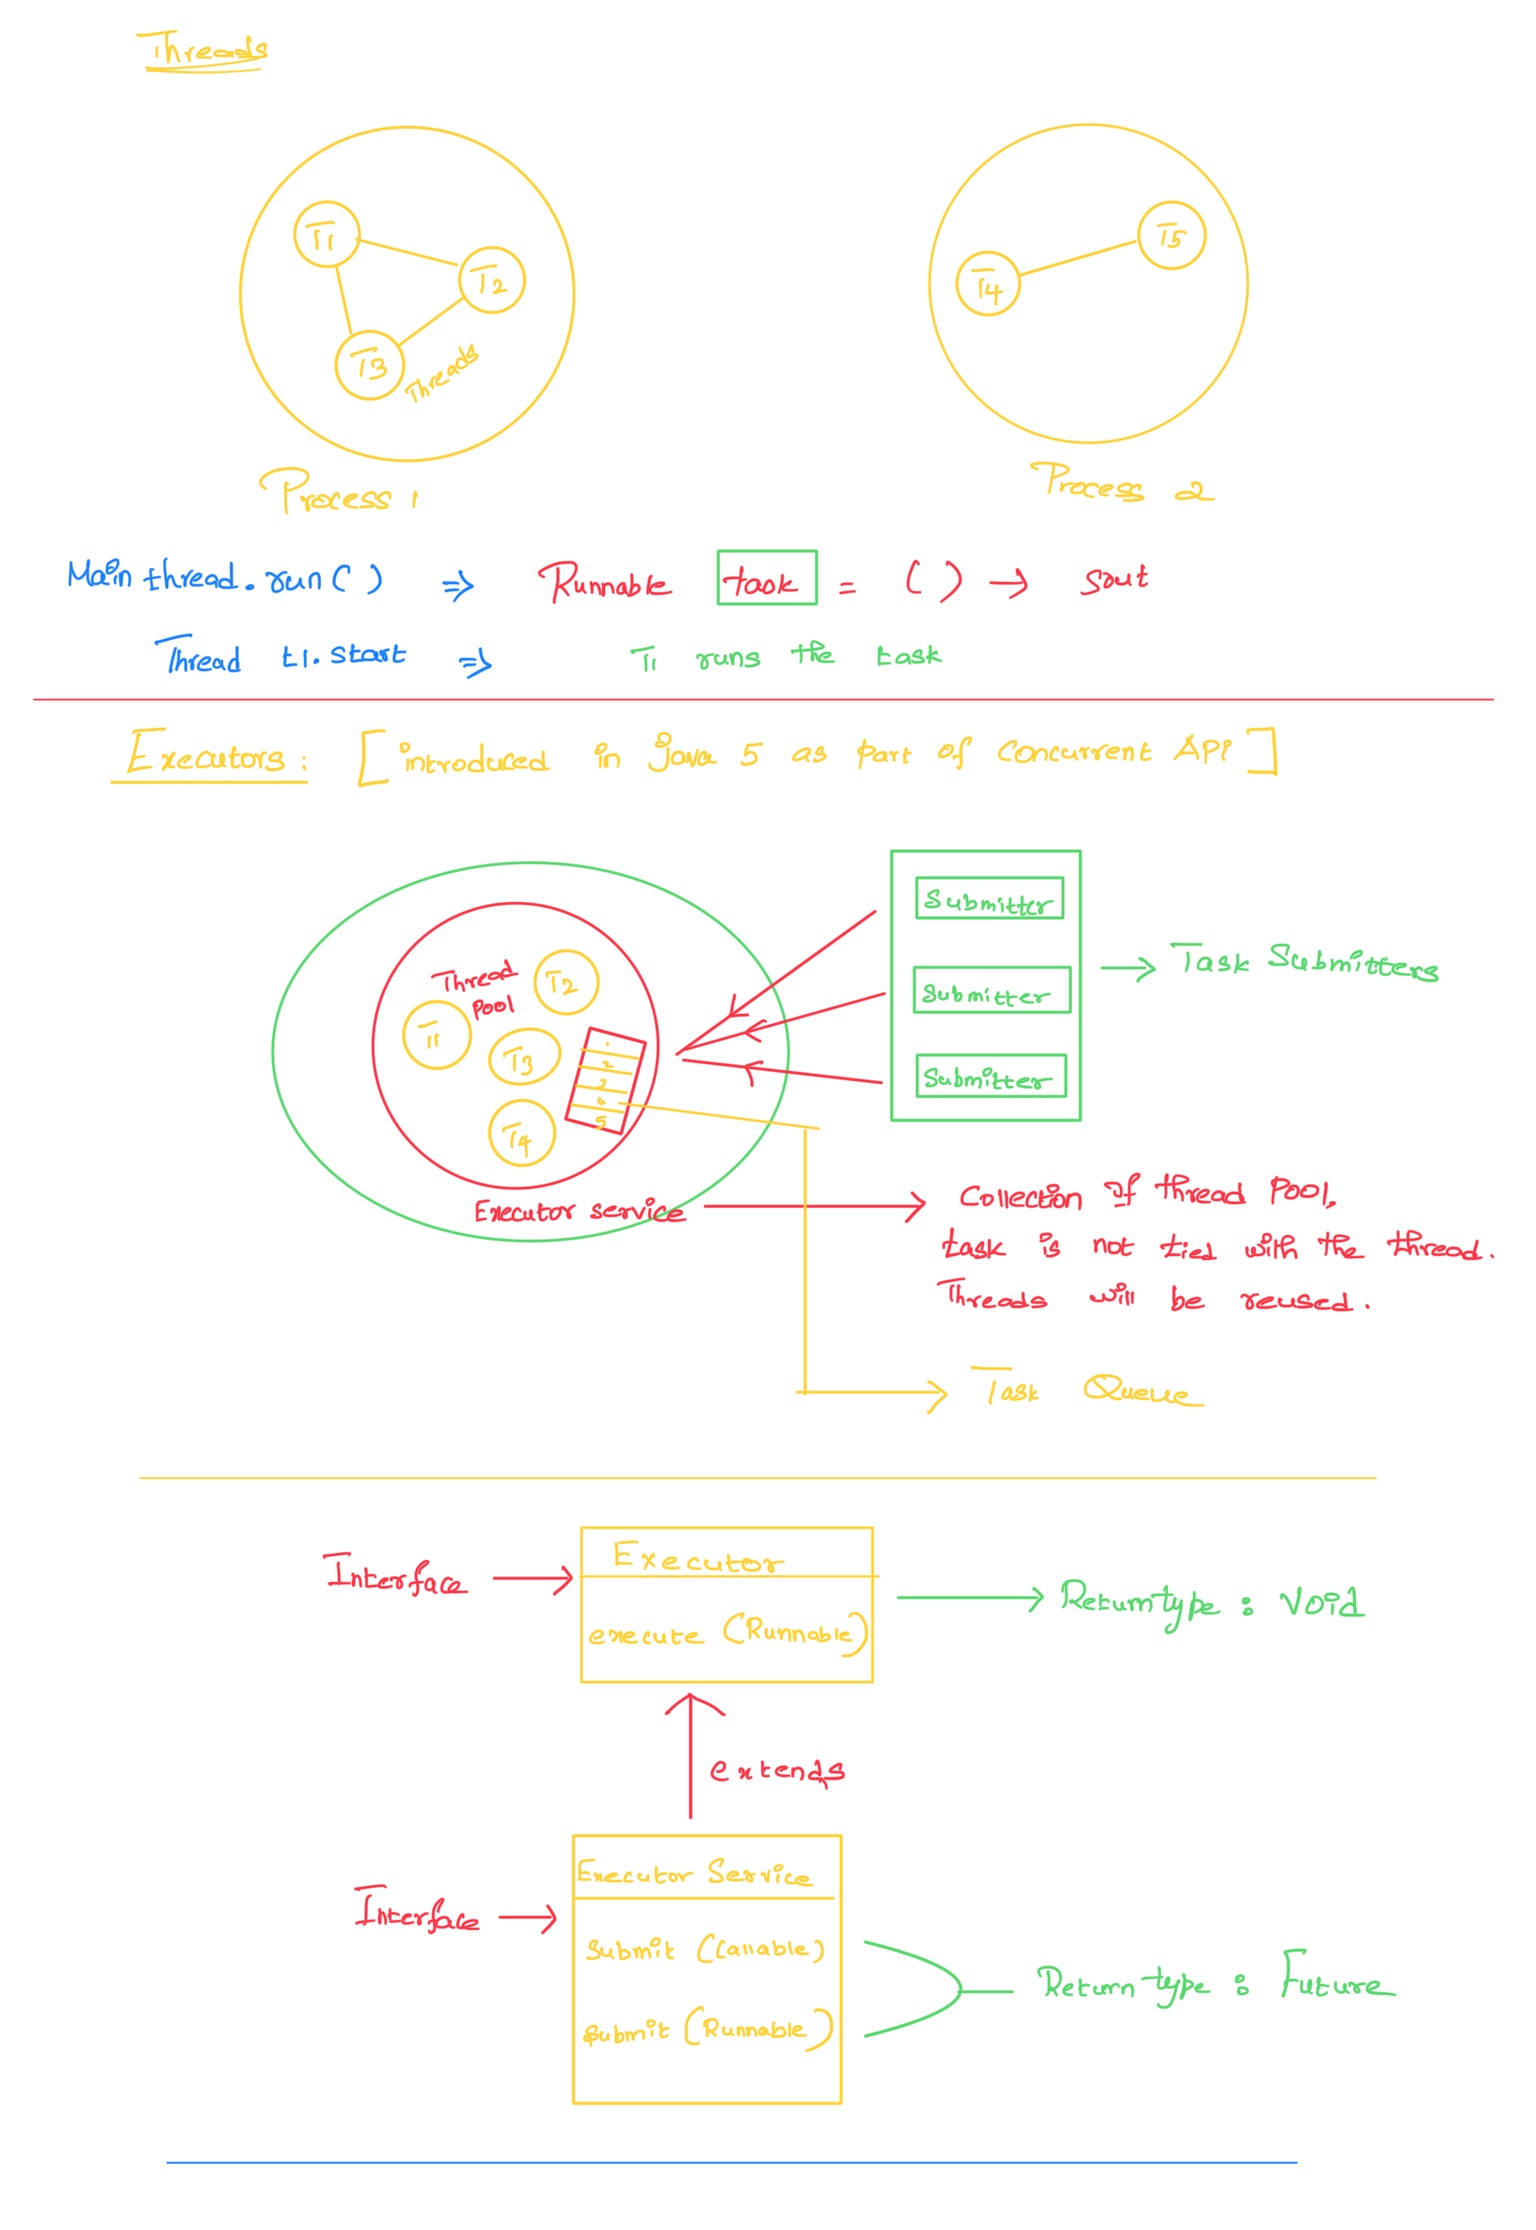 Threads
T1
T2
T3
Threads
Process 1
T4
T5
Process 2
Main thread.run() => Runnable task = () → Sout
Thread t1.start => T1 runs the task
Executors: [introduced in Java 5 as part of Concurrent API]
Thread
Pool
T1
T2
T3
T4
1
2
3
4
5
Executor service
Submitter
Submitter
Submitter
→ Task Submitters
→ Collection of thread Pool.
task is not tied with the thread.
Threads will be reused.
→ Task Queue
Interface →
Executor
execute (Runnable)
→ Return type : Void
extends
Interface →
Executor Service
Submit (Callable)
Submit (Runnable)
Return type : Future